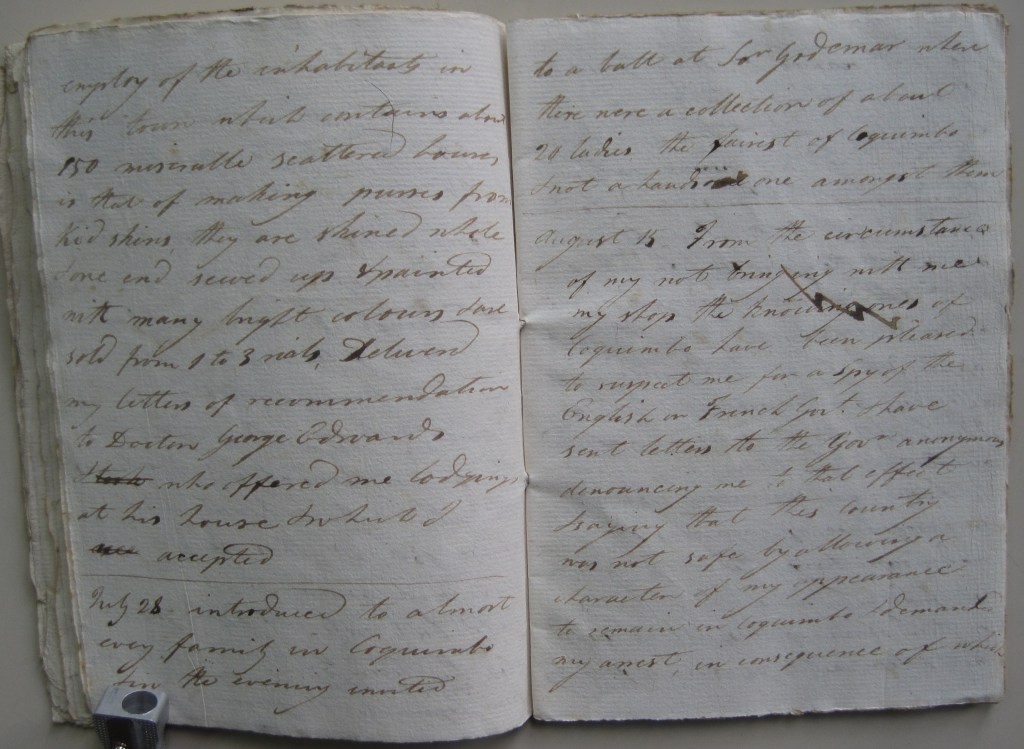 employ of the inhabitants in
this town which contains about
150 miserable scattered houses
is that of making purses from
Kid skins, they are skined whole
& one end sewed up & painted
with many bright colours & are
sold from 1 to 3 rials, Deliverd
my letters of recommendation
to Doctor George Edwards
who offered me lodgings
at his house & which I
accepted
July 28 introduced to almost
every family in Coquimbo
in the evening invited
to a ball at Sor Godemar where
there were a collection of about
20 ladies the fairest of Coquimbo
& not a handsome one amongst them
August 15 From the circumstance
of my not bringing with me
my shop the knowing ones of
Coquimbo have been pleased
to suspect me for a spy of the
English or French Govt. & have
sent letters to the Govr anonymous
denouncing me to that effect
& saying that this country
was not safe by allowing a
character of my appearance
to remain in Coquimbo & demand
my arrest, in consequence of which